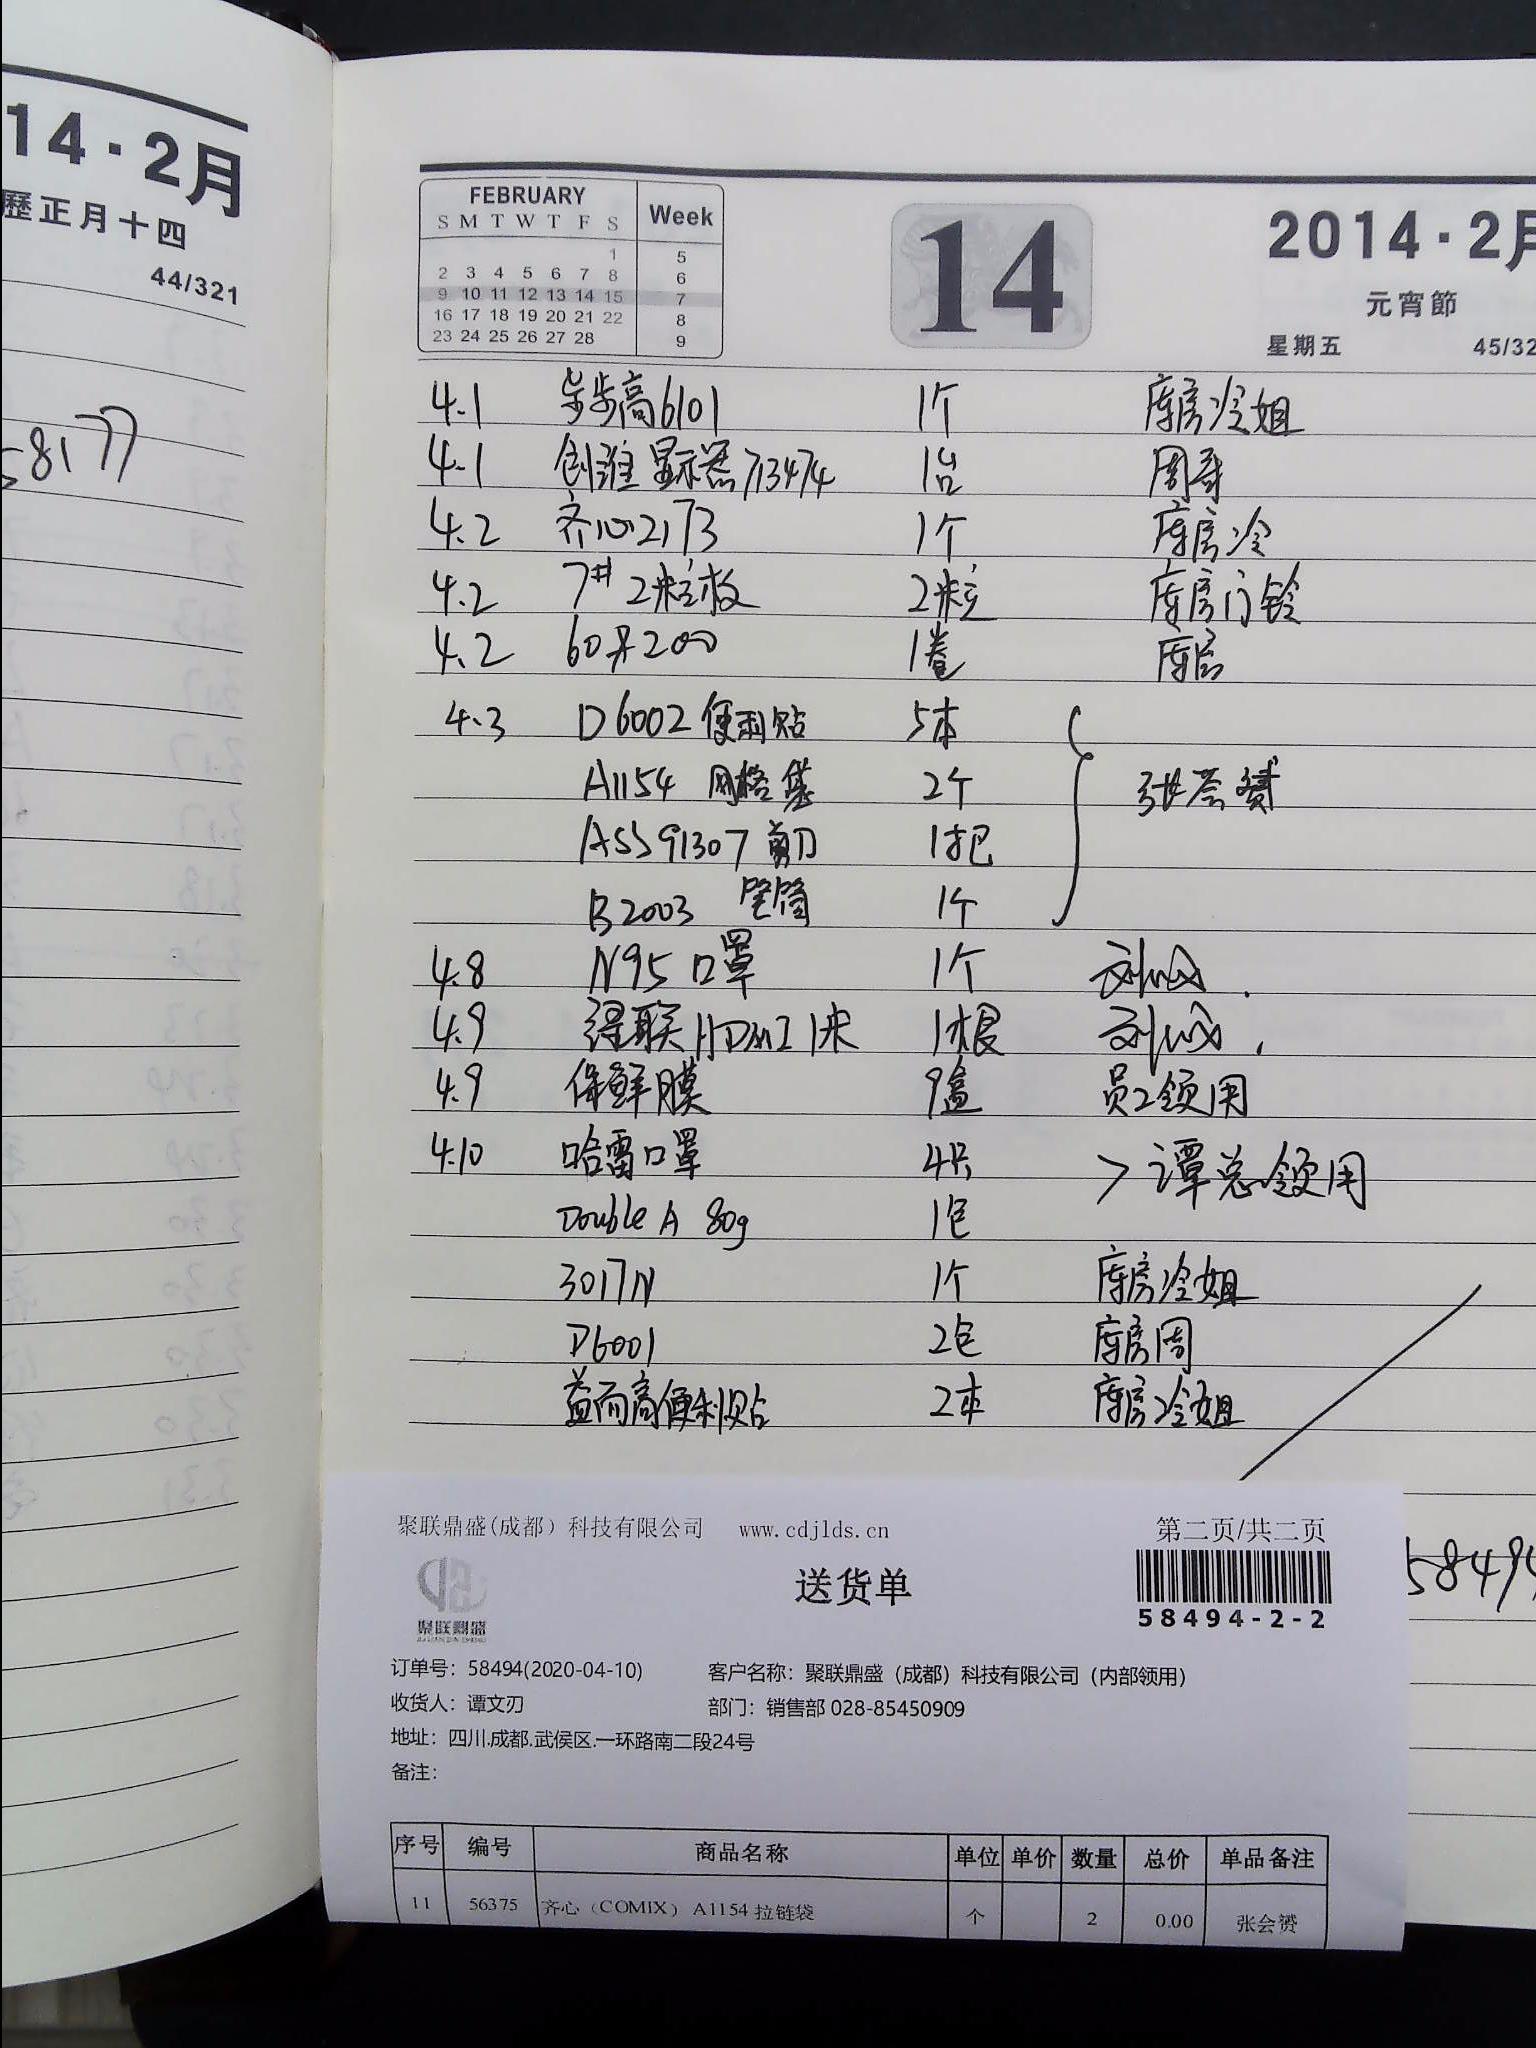 14·2月
歷正月十四
44/321
58177
FEBRUARY Week
S M T W T F S
1 5
2 3 4 5 6 7 8 6
9 10 11 12 13 14 15 7
16 17 18 19 20 21 22 8
23 24 25 26 27 28 9
14
2014·2月
元宵節
星期五 45/32
4.1 步步高6101 1个 库房冷姐
4.1 创维显示器713474 1台 周哥
4.2 齐心2173 1个 库房冷
4.2 7# 2粒板 2粒 库房门铃
4.2 60 200 1卷 库房
4.3 D6002便利贴 5本
A1154 网格袋 2个 张会赟
ASS91307 剪刀 1把
B2003 笔筒 1个
4.8 N95口罩 1个 刘成.
4.9 绿联HDMI 1米 1根 刘成.
4.9 保鲜膜 9盒 员工领用
4.10 哈雷口罩 4只 >谭总领用
Double A 80g 1包
3017N 1个 库房冷姐
D6001 2包 库房周
益而高便利贴 2本 库房冷姐
聚联鼎盛(成都）科技有限公司 www.cdjlds.cn 第二页/共二页
送货单
聚联鼎盛
58494-2-2
5849
订单号：58494(2020-04-10) 客户名称：聚联鼎盛（成都）科技有限公司（内部领用）
收货人：谭文刃 部门：销售部 028-85450909
地址：四川.成都.武侯区.一环路南二段24号
备注：
序号 编号 商品名称 单位 单价 数量 总价 单品备注
11 56375 齐心（COMIX） A1154 拉链袋 个 2 0.00 张会赟